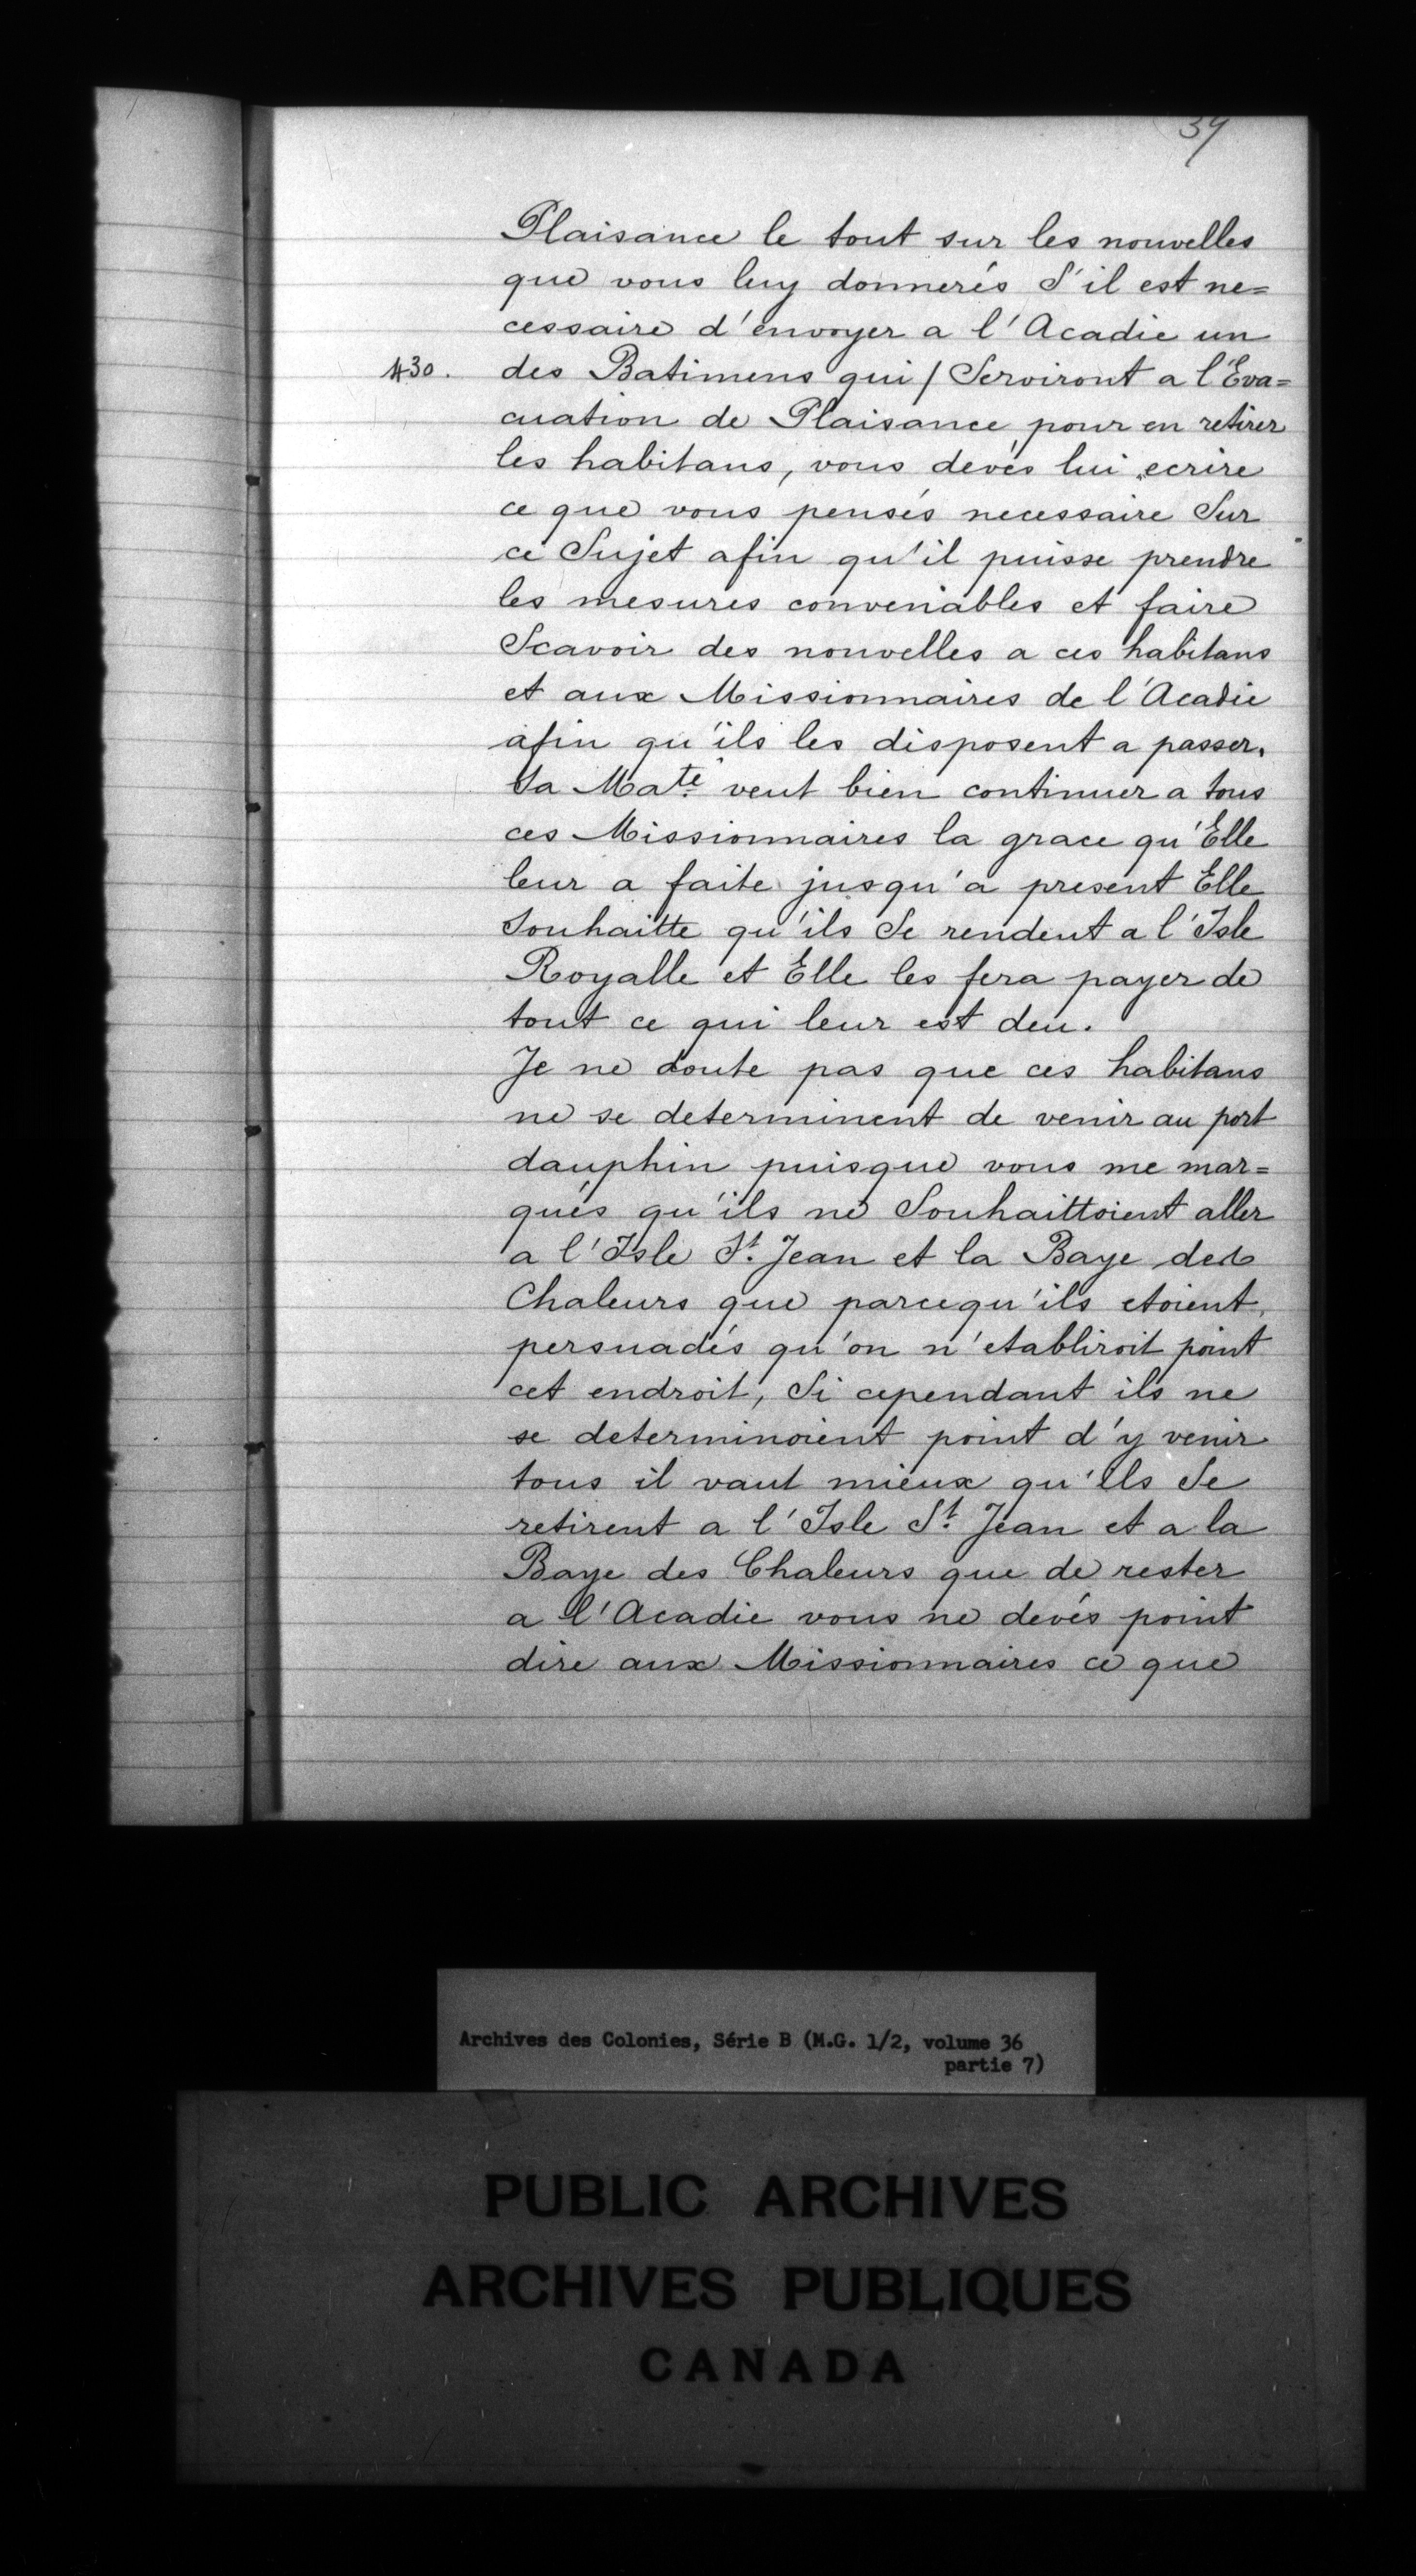 39
Plaisance le tout sur les nouvelles
que vous luy donnerés S'il est ne=
cessaire d'envoyer a l'Acadie un
430. des Batimens qui / Serviront a l'Eva=
cuation de Plaisance pour en retirer
les habitans, vous devés lui ecrire
ce que vous pensés necessaire Sur
ce Sujet afin qu'il puisse prendre
les mesures convenables et faire
Scavoir des nouvelles a ces habitans
et aux Missionnaires de l'Acadie
afin qu'ils les disposent a passer.
Sa Ma.te veut bien continuer a tous
ces Missionnaires la grace qu'Elle
leur a faite jusqu'a present Elle
Souhaitte qu'ils Se rendent a l'Isle
Royalle et Elle les fera payer de
tout ce qui leur est deu.
Je ne doute pas que ces habitans
ne se determinent de venir au port
dauphin puisque vous me mar=
qués qu'ils ne Souhaittoient aller
a l'Isle St. Jean et la Baye des
Chaleurs que parcequ'ils etoient
persuadés qu'on n'etabliroit point
cet endroit, Si cependant ils ne
se determinoient point d'y venir
tous il vaut mieux qu'ils Se
retirent a l'Isle St. Jean et a la
Baye des Chaleurs que de rester
a l'Acadie vous ne devés point
dire aux Missionnaires ce que
Archives des Colonies, Série B (M.G. 1/2, volume 36
partie 7)
PUBLIC ARCHIVES
ARCHIVES PUBLIQUES
CANADA